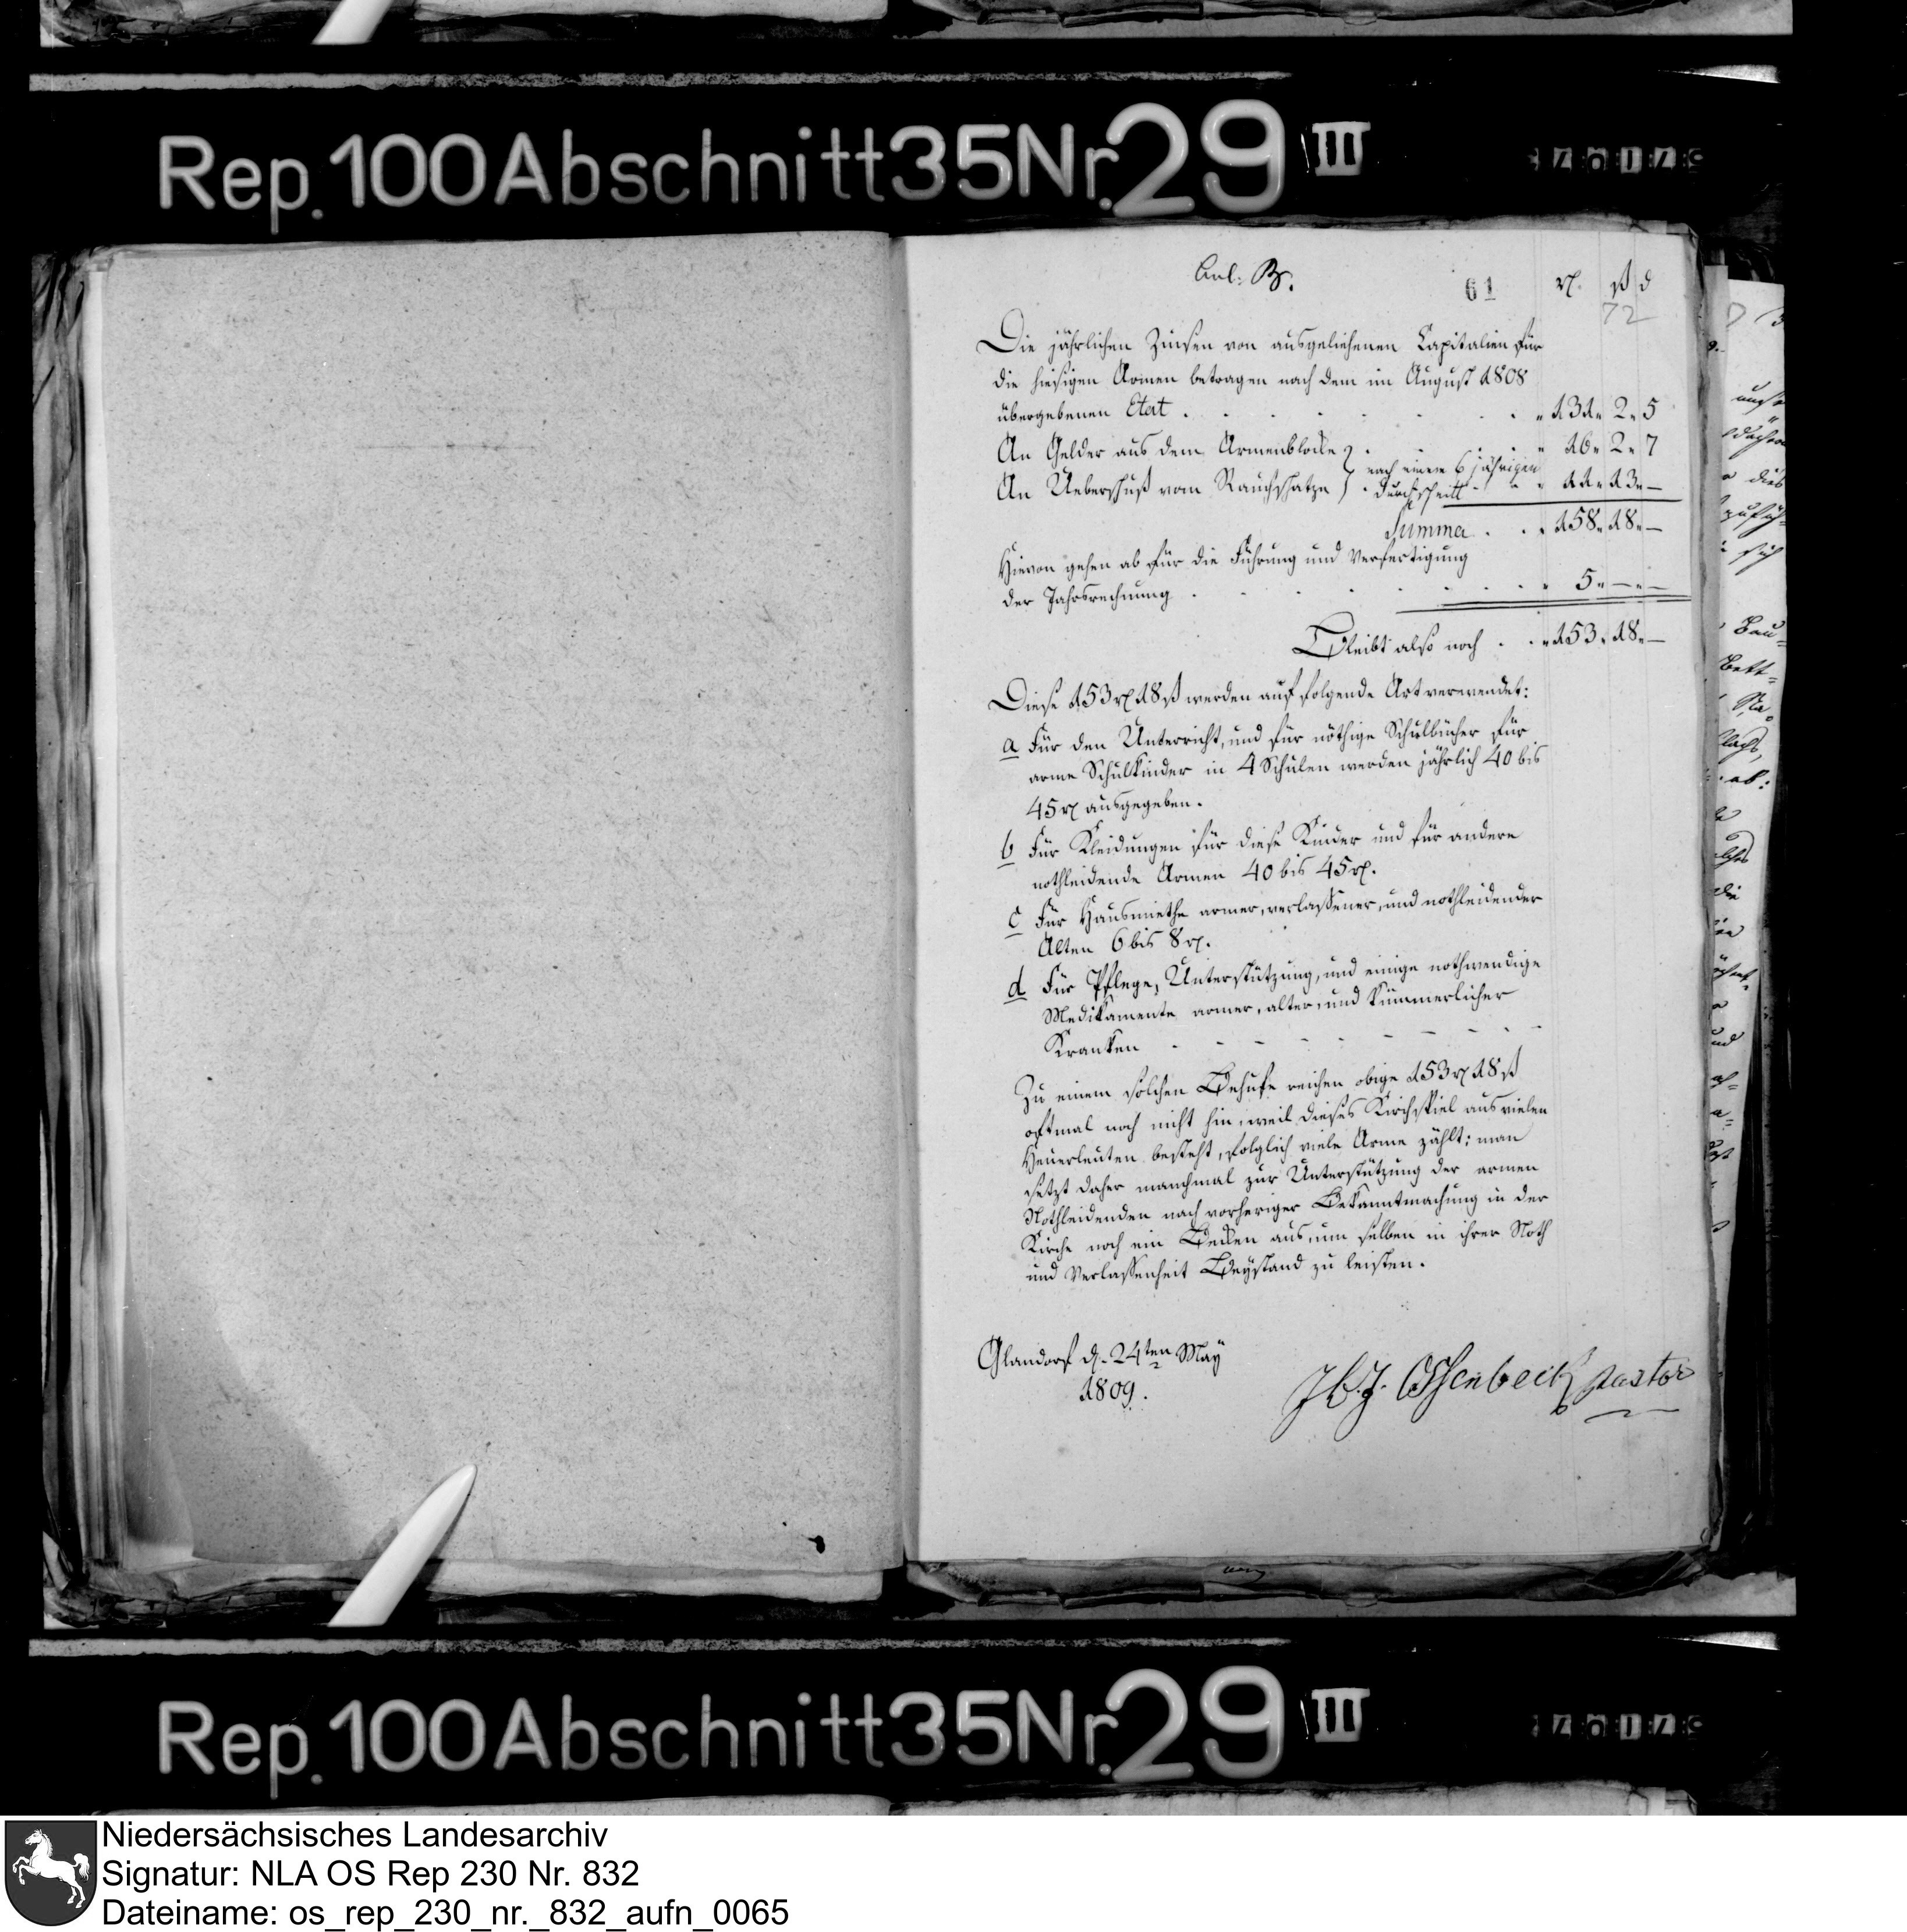 Rep. 100 Abschnitt 35 Nr. 29 III
Anl: B.
61
rl. ß d
72
Die jährlichen Zinsen von ausgeliehenen Capitalien für
die hiesigen Armen betragen nach dem im August 1808
übergebenen Etat . . . . . . „ 131„ 2„ 5
An Gelder aus dem Armenblocke } . . . . „ 16„ 2„ 7
nach einem 6 jährigen
An Ueberschuß vom Rauchschatze } Durchschnitt „ „ 11„ 13„ —
Summa . . „ 158„ 18„ —
Hievon gehen ab für die Führung und Verfertigung
der Jahrsrechnung . . . . . . . „ 5„ — „ —
Bleibt also noch . . „ 153„ 18„ —
Diese 153 rl 18 ß werden auf folgende Art verwendet:
a Für den Unterricht, und für nöthige Schulbücher für
arme Schulkinder in 4 Schulen werden jährlich 40 bis
45 rl ausgegeben.
b Für Kleidungen für diese Kinder und für andere
nothleidende Armen 40 bis 45 rl.
c Für Hausmiethe armer, verlassener, und nothleidender
Alten 6 bis 8 rl.
d Für Pflege, Unterstützung, und einige nothwendige
Medikamente armer, alter, und kümmerlicher
Kranken - - - - - - -
Zu einem solchen Behufe reichen obige 153 rl 18 ß
oftmal noch nicht hin, weil dieses Kirchspiel aus vielen
Heuerleuten besteht, folglich viele Arme zählt; man
setzt daher manchmal zur Unterstützung der armen
Nothleidenden nach vorheriger Bekanntmachung in der
Kirche noch ein Becken aus, um selben in ihrer Noth
und Verlassenheit Beystand zu leisten.
Glandorf d. 24ten May
1809.
Ossenbeck pastor
Rep. 100 Abschnitt 35 Nr. 29 III
Niedersächsisches Landesarchiv
Signatur: NLA OS Rep 230 Nr. 832
Dateiname: os_rep_230_nr._832_aufn_0065